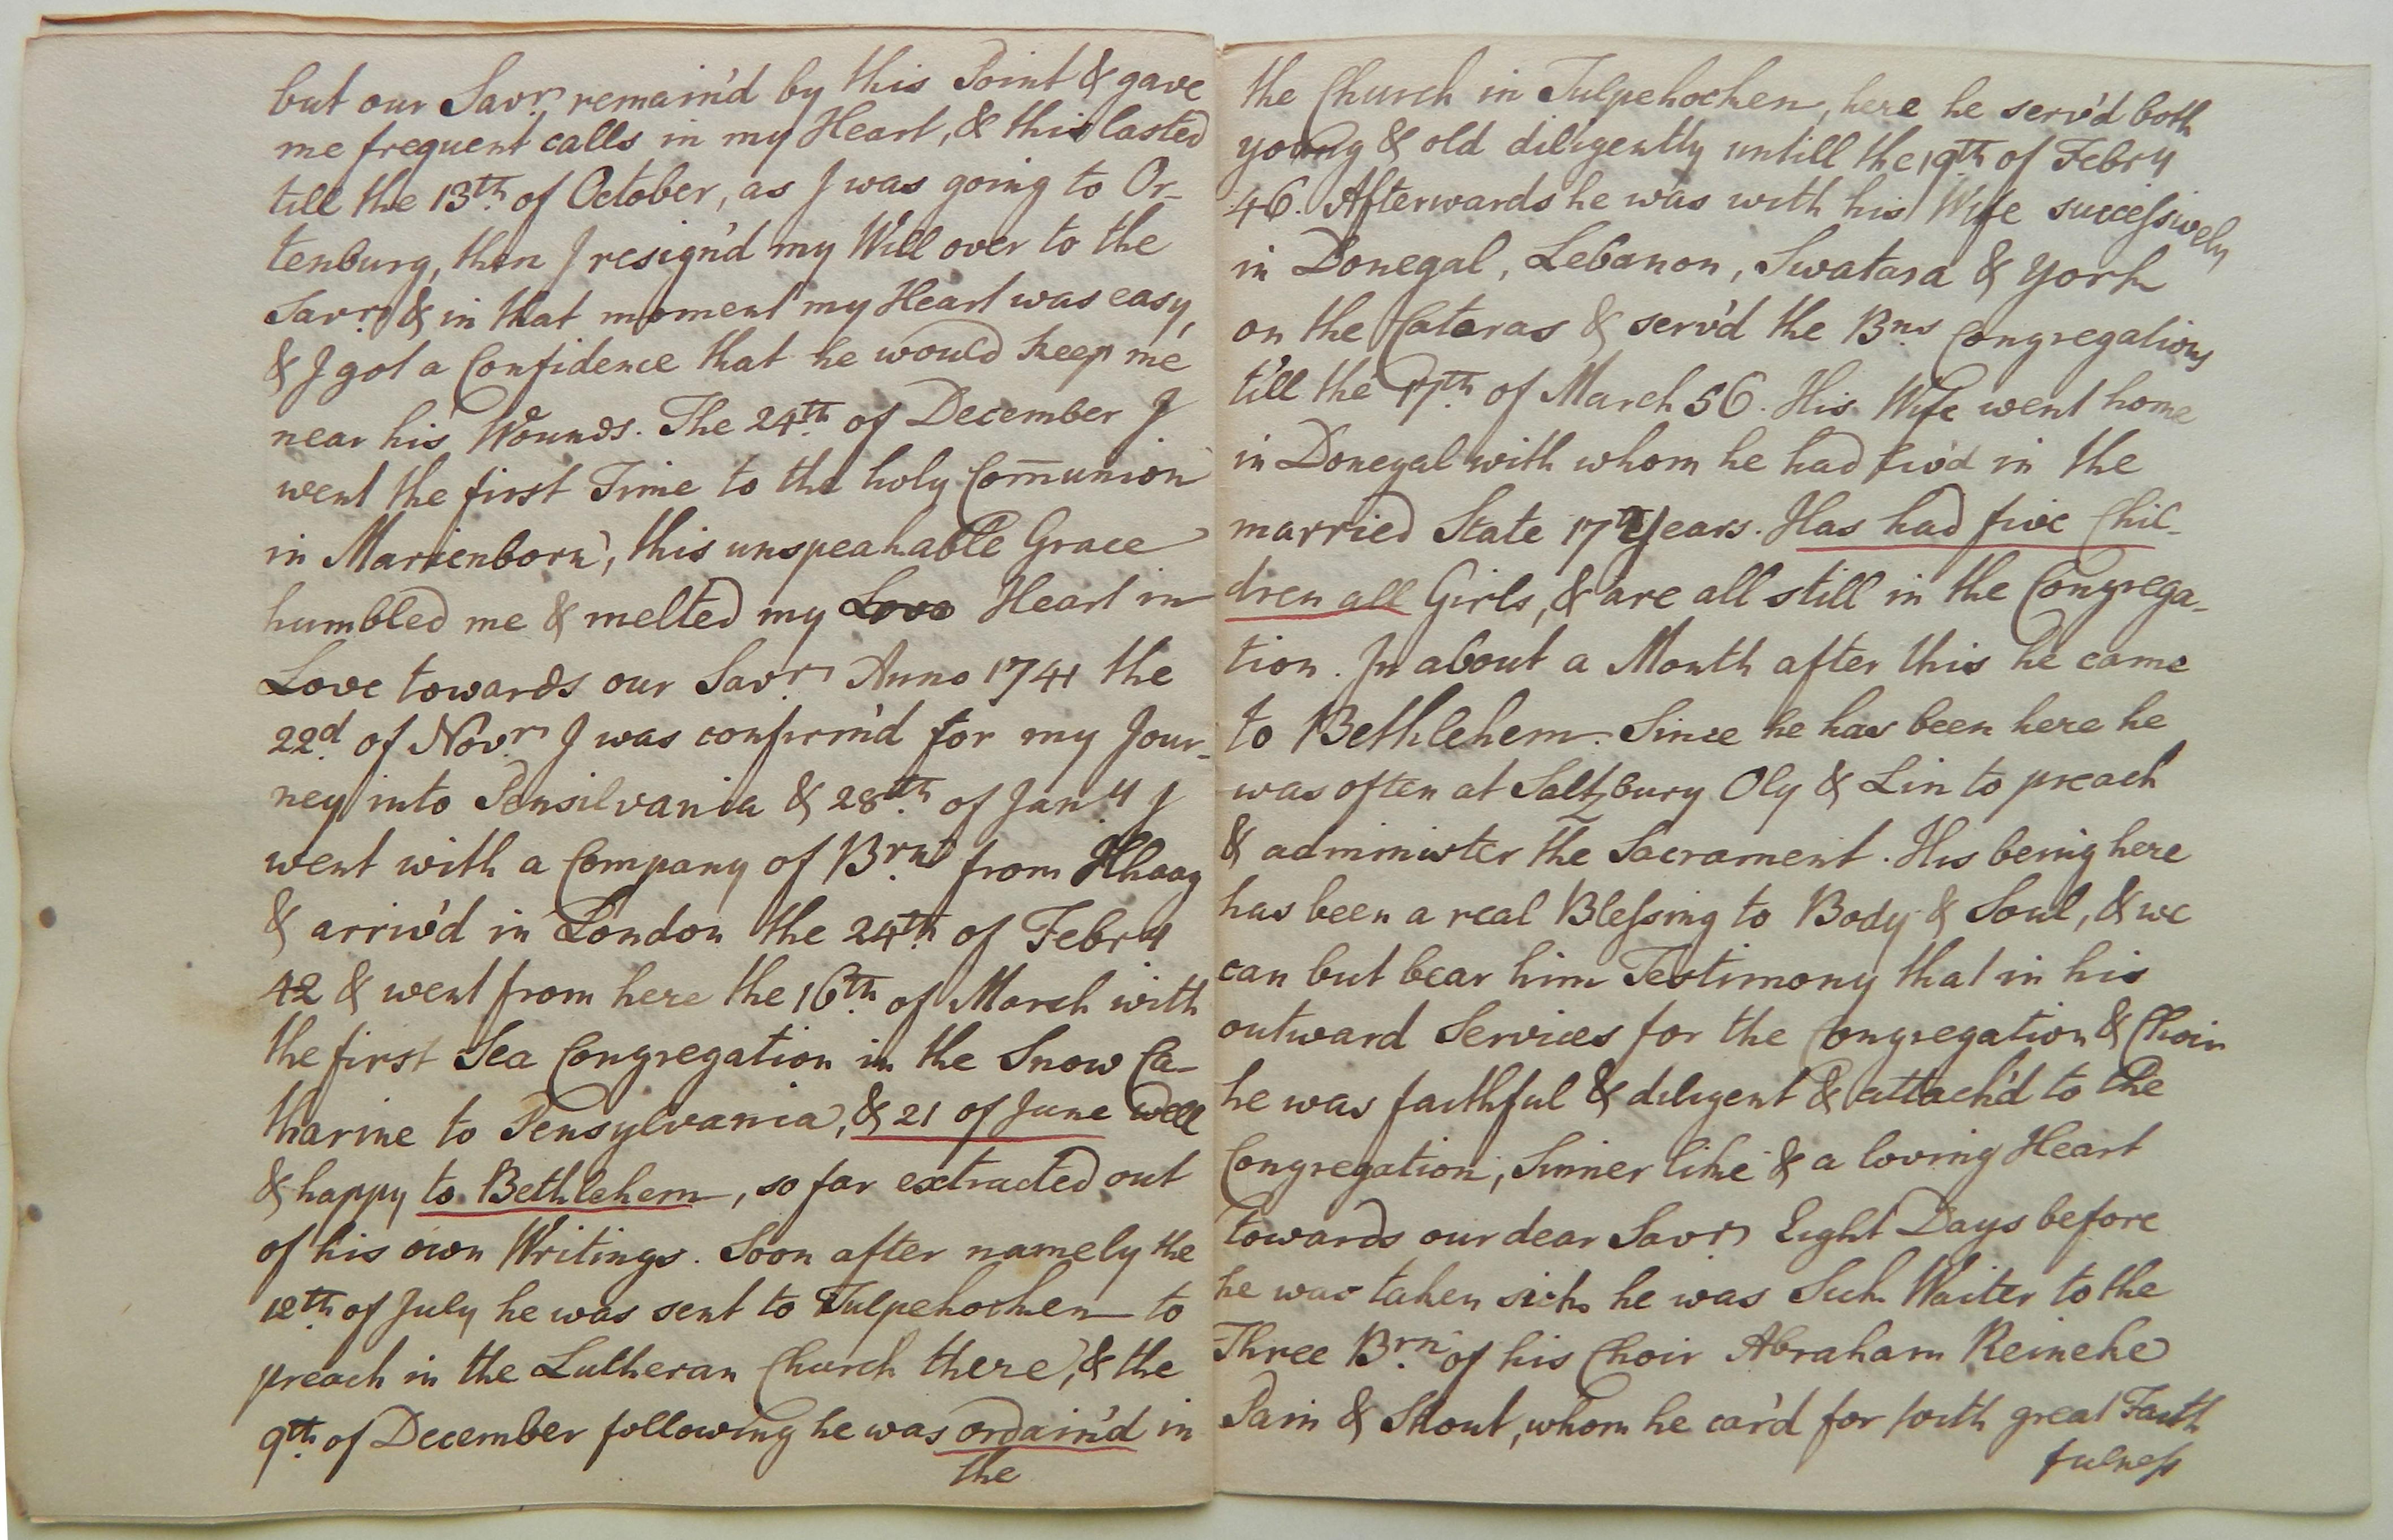 but our Savr. remain'd by this Point & gave
me frequent calls in my Heart, & this lasted
till the 13th. of October, as J was going to Or-
tenburg, then J resign'd my Will over to the
Savr. & in that moment my Heart was easy,
& J got a Confidence that he would keep me
near his Wounds. The 24th. of December J
went the first Time to the holy Com̄union
in Marienborn, this unspeakable Grace
humbled me & melted my Love Heart in
Love towards our Savr. Anno 1741 the
22d. of Novr. J was confirm'd for my Jour-
ney into Pensilvania & 28th. of Jany. J
went with a Company of Brn. from Hhaag
& arriv'd in London the 24th. of Febry
42 & went from here the 16th. of March with
the first Sea Congregation in the Snow Ca-
tharine to Pensylvania, & 21 of June well
& happy to Bethlehem, so far extracted out
of his own Writings. Soon after namely the
th. of July he was sent to Tulpehocken to
preach in the Lutheran Church there, & the
9th. of December following he was ordain'd in
the
the Church in Tulpehocken, here he serv'd both
young & old diligently untill the 19th of Febry
46. Afterwards he was with his Wife successively
in Donegal, Lebanon, Swatara & York
on the Catoras & serv'd the Bns Congregations
till the 17th. of March 56. His Wife went home
in Donegal with whom he had liv'd in the
married State 17 Years. Has had five Chil-
dren all Girls, & are all still in the Congrega-
tion. Jn about a Month after this he came
to Bethlehem. Since he has been here he
was often at Saltzbury Oly & Lin to preach
& administer the Sacrament. His being here
has been a real Blessing to Body & Soul, & we
can but bear him Testimony that in his
outward Services for the Congregation & Choir
he was faithful & diligent & attach'd to the
Congregation, Sinner like & a loving Heart
towards our dear Savr. Eight Days before
he was taken sick he was Sick Waiter to the
Three Brn. of his Choir Abraham Reineke
Pain & Stout, whom he car'd for with great Faith
fulness